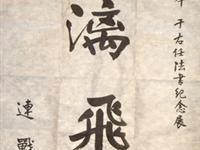 于右任法書紀念展
漓飛
連戰